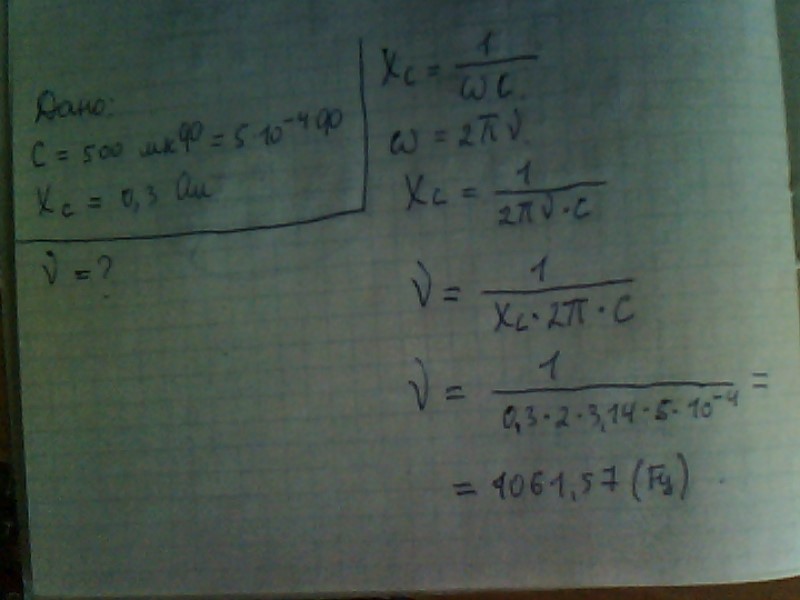 Дано:
C = 500 мкФ = 5·10⁻⁴ Ф
Xc = 0,3 Ом
ν = ?
Xc = 1/(ωC)
ω = 2πν
Xc = 1/(2πν·C)
ν = 1/(Xc·2π·C)
ν = 1/(0,3·2·3,14·5·10⁻⁴) =
= 1061,57 (Гц)